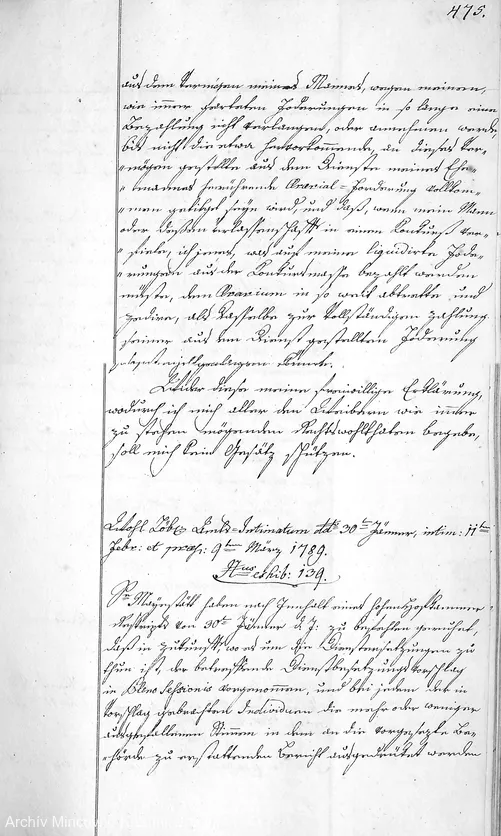 475.
aus dem Vermögen meines Mannes, wegen meinen,
wie immer gearteten Foderungen in so lange eine
Bezahlung nicht verlangen, oder annehmen werde,
bis nicht die etwa hervorkommende, an dieses Ver-
mögen gestellte aus dem Dienste meines Ehe-
mannes herrührende Ærarial-Forderung vollkom-
men getilget seyn wird, und daß, wenn mein Mann
oder dessen Verlassenschaft in einen Konkurs ver-
fiele, ich jenes, was auf meine liquidirte Fode-
rungen aus der Konkursmasse bezahlt werden
müste, dem Ærarium in so weit abtrette, und
zedire, als dasselbe zur vollständigen Zahlung
seiner aus dem Dienst gestellten Foderung
könnte.
Wider diese meine freiwillige Erklärung,
wodurch ich mich aller den Weibern wie immer
zu stehen mögenden Rechtswohlthaten begebe,
soll mich kein Gesätz schützen.
Wohl Löbl Amts-Intimatum ddt 30ten Jänner, intim: 11ten
Febr: et præs: 9ten März 1789.
Nrus exhib: 139.
Sr Mayestätt haben nach Innhalt eines hohen Hofkammer
Rescripts von 30ten Jänner d. J. zu befehlen geruhet,
daß in Zukunft, wo es um die Dienstersetzungen zu
thun ist, der betreffende Dienstbesetzungs Vorschlag
in Pleno Sessionis vorgenommen, und bei jedem der in
Vorschlag gebrachten Individuen die mehr oder weniger
ausgefallenen Stimmen in dem an die vorgesetzte Be-
hörde zu erstattenden Bericht ausgedrücket werden
Archív Mincov